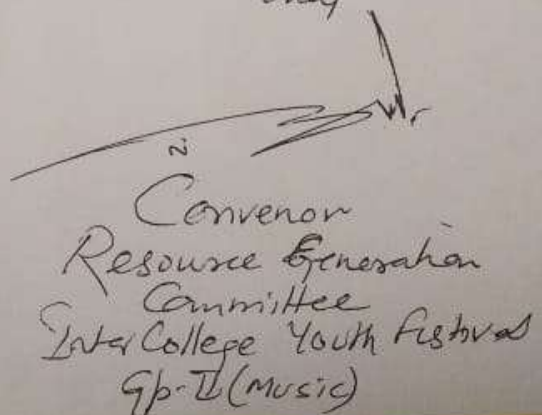 Convenor
Resource Generation
Committee
Inter College Youth Festival
Gp-II (Music)